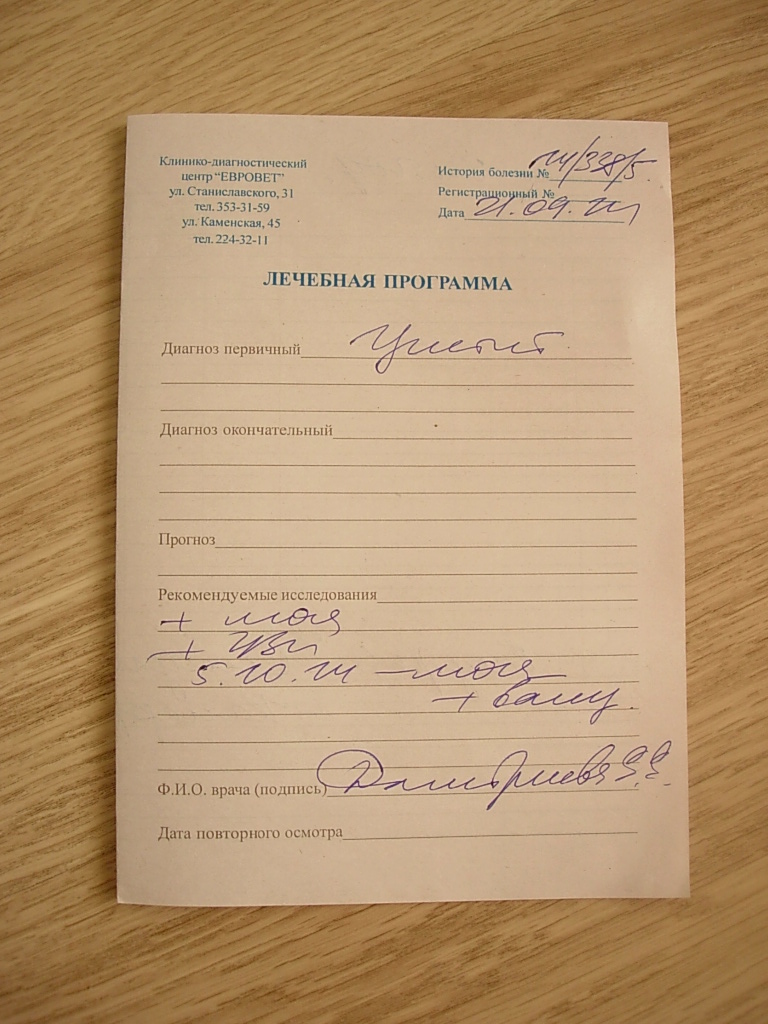 Клинико-диагностический
центр "ЕВРОВЕТ"
ул. Станиславского, 31
тел. 353-31-59
ул. Каменская, 45
тел. 224-32-11
История болезни №
Регистрационный №
Дата 21.09.14
ЛЕЧЕБНАЯ ПРОГРАММА
Диагноз первичный Цистит
Диагноз окончательный
Прогноз
Рекомендуемые исследования
+ моча
+ УЗИ
5.10.14 – моча
+
Ф.И.О. врача (подпись)
Дата повторного осмотра